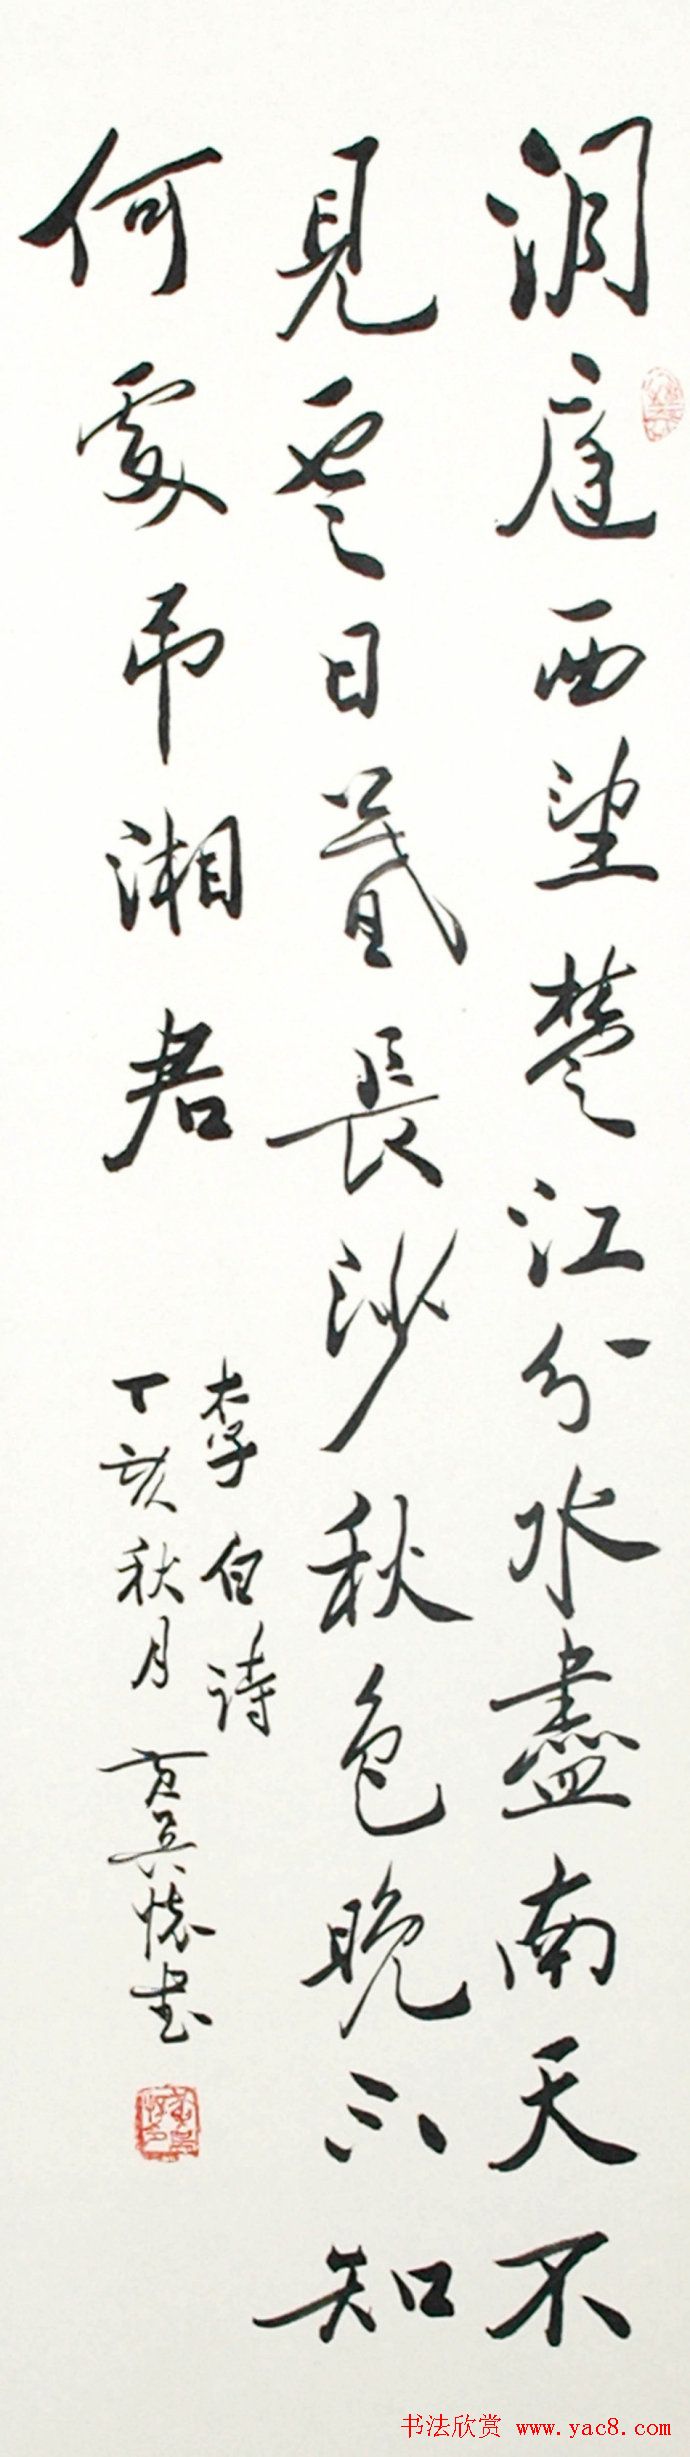 洞庭西望楚江分水盡南天不
見雲日長沙秋色晚不知
何處吊湘君
李白詩
丁亥秋月黃懷書
书法欣赏 www.yac8.com